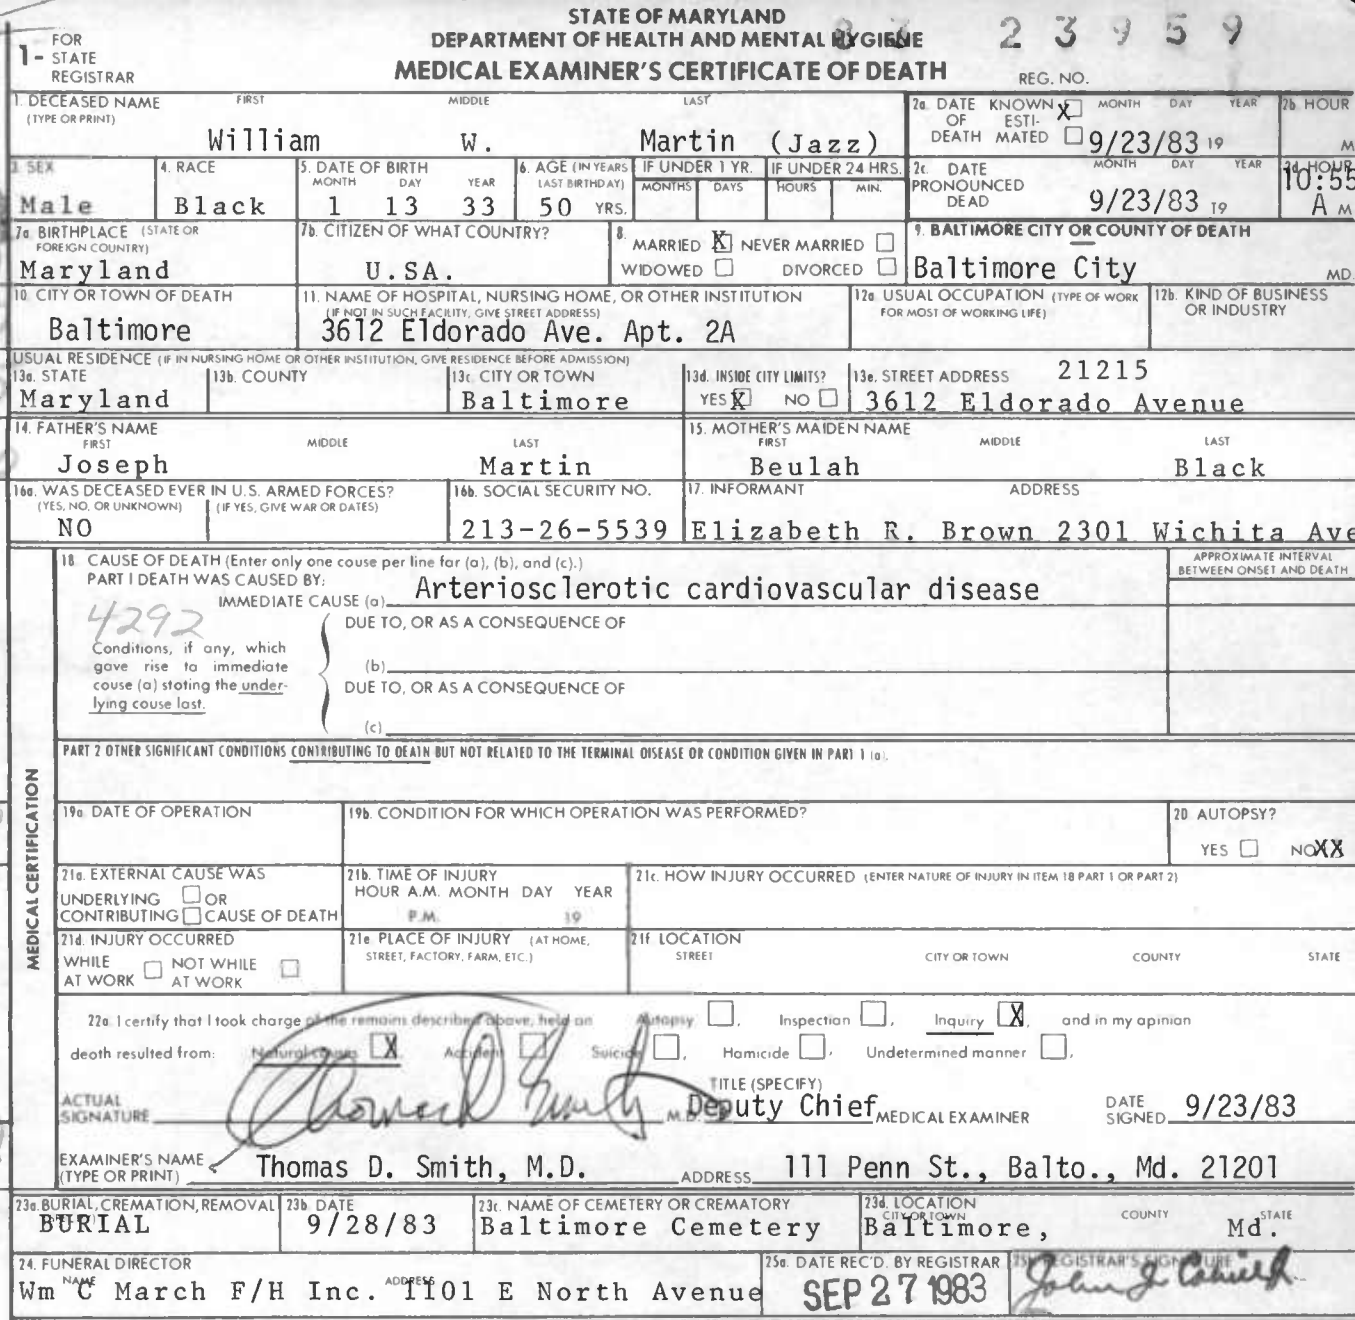 STATE OF MARYLAND
DEPARTMENT OF HEALTH AND MENTAL HYGIENE
MEDICAL EXAMINER'S CERTIFICATE OF DEATH
1- FOR STATE REGISTRAR
83 23959
REG. NO.
1. DECEASED NAME FIRST MIDDLE LAST
(TYPE OR PRINT)
William W. Martin (Jazz)
2a. DATE OF DEATH KNOWN X ESTIMATED MONTH DAY YEAR
9/23/83 19
2b. HOUR
M
3. SEX
Male
4. RACE
Black
5. DATE OF BIRTH
MONTH DAY YEAR
1 13 33
6. AGE (IN YEARS LAST BIRTHDAY)
50 YRS.
IF UNDER 1 YR.
MONTHS DAYS
IF UNDER 24 HRS.
HOURS MIN.
2c. DATE PRONOUNCED DEAD MONTH DAY YEAR
9/23/83 19
2d. HOUR
10:55
A M
7a. BIRTHPLACE (STATE OR FOREIGN COUNTRY)
Maryland
7b. CITIZEN OF WHAT COUNTRY?
U.SA.
8. MARRIED X NEVER MARRIED
WIDOWED DIVORCED
9. BALTIMORE CITY OR COUNTY OF DEATH
Baltimore City MD.
10. CITY OR TOWN OF DEATH
Baltimore
11. NAME OF HOSPITAL, NURSING HOME, OR OTHER INSTITUTION
(IF NOT IN SUCH FACILITY, GIVE STREET ADDRESS)
3612 Eldorado Ave. Apt. 2A
12a. USUAL OCCUPATION (TYPE OF WORK FOR MOST OF WORKING LIFE)
12b. KIND OF BUSINESS OR INDUSTRY
USUAL RESIDENCE (IF IN NURSING HOME OR OTHER INSTITUTION, GIVE RESIDENCE BEFORE ADMISSION)
13a. STATE
Maryland
13b. COUNTY
13c. CITY OR TOWN
Baltimore
13d. INSIDE CITY LIMITS?
YES X NO
13e. STREET ADDRESS 21215
3612 Eldorado Avenue
14. FATHER'S NAME
FIRST MIDDLE LAST
Joseph Martin
15. MOTHER'S MAIDEN NAME
FIRST MIDDLE LAST
Beulah Black
16a. WAS DECEASED EVER IN U.S. ARMED FORCES?
(YES, NO, OR UNKNOWN) (IF YES, GIVE WAR OR DATES)
NO
16b. SOCIAL SECURITY NO.
213-26-5539
17. INFORMANT ADDRESS
Elizabeth R. Brown 2301 Wichita Ave
MEDICAL CERTIFICATION
18. CAUSE OF DEATH (Enter only one couse per line for (a), (b), and (c).)
PART I DEATH WAS CAUSED BY:
IMMEDIATE CAUSE (a) Arteriosclerotic cardiovascular disease
APPROXIMATE INTERVAL BETWEEN ONSET AND DEATH
4292
Conditions, if any, which gave rise to immediate couse (a) stoting the underlying couse last.
DUE TO, OR AS A CONSEQUENCE OF
(b)
DUE TO, OR AS A CONSEQUENCE OF
(c)
PART 2 OTHER SIGNIFICANT CONDITIONS CONTRIBUTING TO DEATH BUT NOT RELATED TO THE TERMINAL DISEASE OR CONDITION GIVEN IN PART 1 (a).
19a. DATE OF OPERATION
19b. CONDITION FOR WHICH OPERATION WAS PERFORMED?
20. AUTOPSY?
YES NO XX
21a. EXTERNAL CAUSE WAS
UNDERLYING OR
CONTRIBUTING CAUSE OF DEATH
21b. TIME OF INJURY
HOUR A.M. MONTH DAY YEAR
P.M. 19
21c. HOW INJURY OCCURRED (ENTER NATURE OF INJURY IN ITEM 18 PART 1 OR PART 2)
21d. INJURY OCCURRED
WHILE AT WORK NOT WHILE AT WORK
21e. PLACE OF INJURY (AT HOME, STREET, FACTORY, FARM, ETC.)
21f. LOCATION
STREET CITY OR TOWN COUNTY STATE
22a. I certify that I took charge of the remains described above, held an Autopsy, Inspection, Inquiry X, and in my opinion
death resulted from: Natural causes X Accident Suicide, Homicide, Undetermined manner.
ACTUAL SIGNATURE Thomas D Smith M.D.
TITLE (SPECIFY)
Deputy Chief MEDICAL EXAMINER
DATE SIGNED 9/23/83
EXAMINER'S NAME (TYPE OR PRINT) Thomas D. Smith, M.D.
ADDRESS 111 Penn St., Balto., Md. 21201
23a. BURIAL, CREMATION, REMOVAL
BURIAL
23b. DATE
9/28/83
23c. NAME OF CEMETERY OR CREMATORY
Baltimore Cemetery
23d. LOCATION
CITY OR TOWN COUNTY STATE
Baltimore, Md.
24. FUNERAL DIRECTOR
NAME ADDRESS
Wm C March F/H Inc. 1101 E North Avenue
25a. DATE REC'D. BY REGISTRAR
SEP 27 1983
25b. REGISTRAR'S SIGNATURE